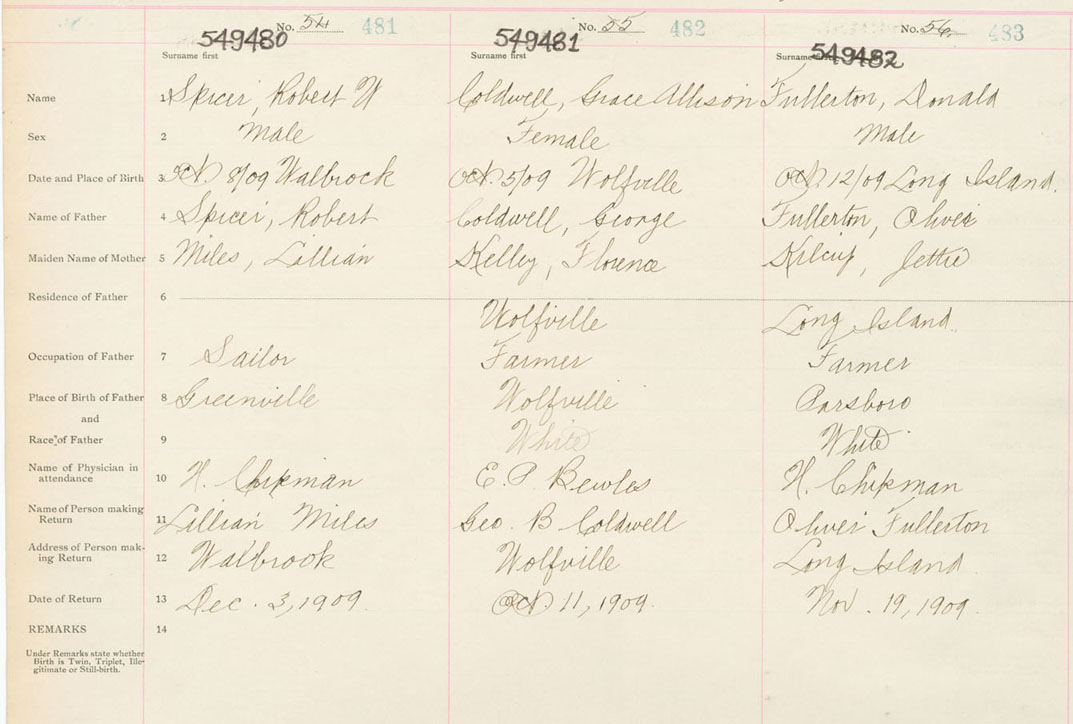 No. 54 481 No. 55 482 No. 56 483
549480 549481 549482
Surname first Surname first Surname first
Name 1 Spicer, Robert W Coldwell, Grace Allison Fullerton, Donald
Sex 2 Male Female Male
Date and Place of Birth 3 Oct. 8/09 Walbrock Oct. 5/09 Wolfville Oct. 12/09 Long Island.
Name of Father 4 Spicer, Robert Coldwell, George Fullerton, Oliver
Maiden Name of Mother 5 Miles, Lillian Kelley, Florence Kilcup, Jettie
Residence of Father 6
Wolfville Long Island.
Occupation of Father 7 Sailor Farmer Farmer
Place of Birth of Father 8 Greenville Wolfville Parsboro
and
Race of Father 9 White White
Name of Physician in
attendance 10 H. Chipman E. P. Bowles H. Chipman
Name of Person making
Return 11 Lillian Miles Geo. B Coldwell Oliver Fullerton
Address of Person mak-
ing Return 12 Walbrook Wolfville Long Island.
Date of Return 13 Dec. 3, 1909. Oct 11, 1909. Nov. 19, 1909.
REMARKS 14
Under Remarks state whether
Birth is Twin, Triplet, Ille-
gitimate or Still-birth.